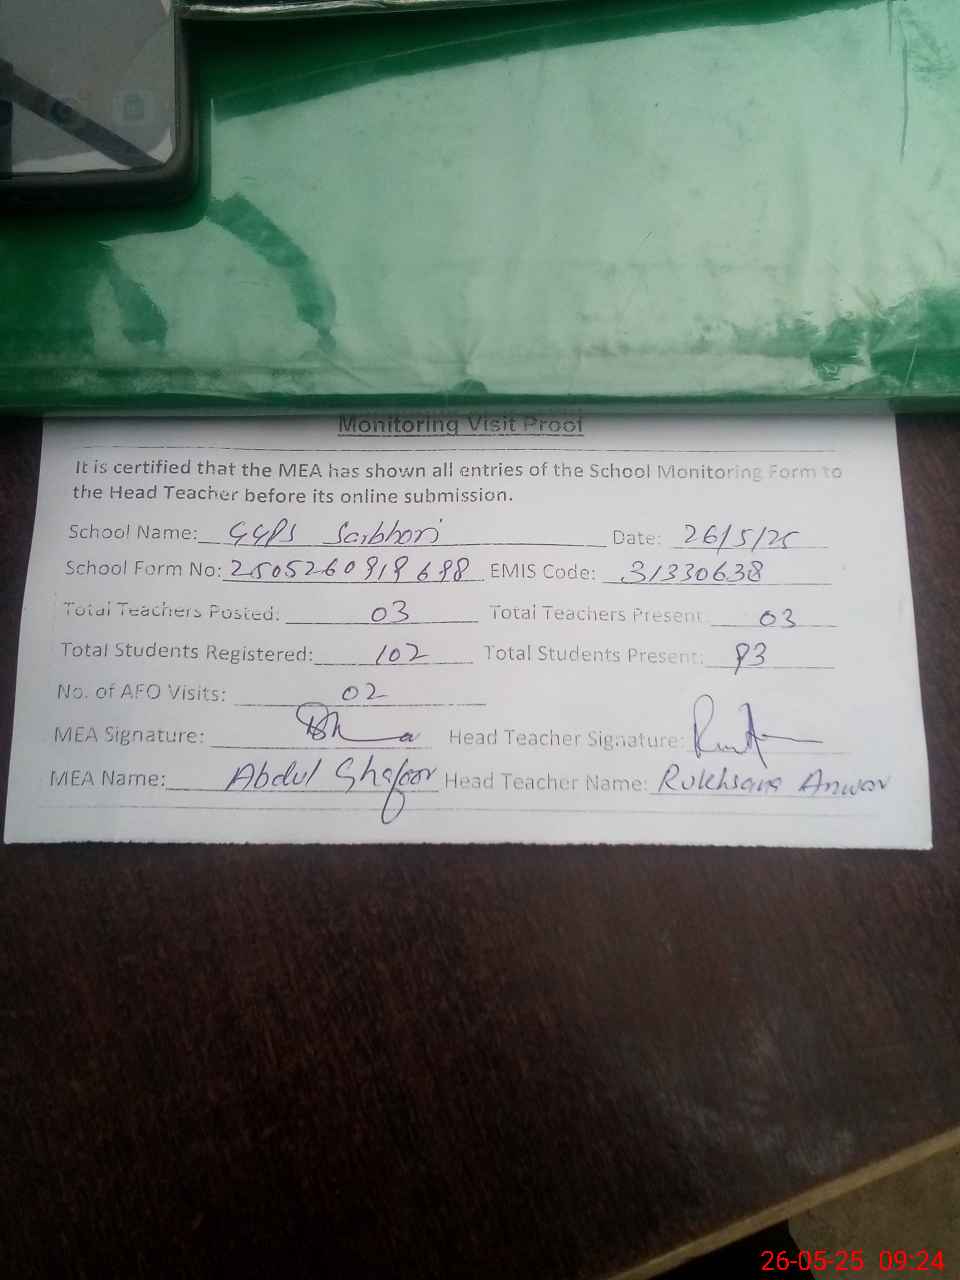 Monitoring Visit Proof
It is certified that the MEA has shown all entries of the School Monitoring Form to
the Head Teacher before its online submission.
School Name: GGPS Saibhori Date: 26/5/25
School Form No: EMIS Code: 31330638
Total Teachers Posted: 03 Total Teachers Present: 03
Total Students Registered: 102 Total Students Present: 93
No. of AFO Visits: 02
MEA Signature: Head Teacher Signature:
MEA Name: Abdul Ghafoor Head Teacher Name: Rukhsana Anwar
26-05-25 09:24